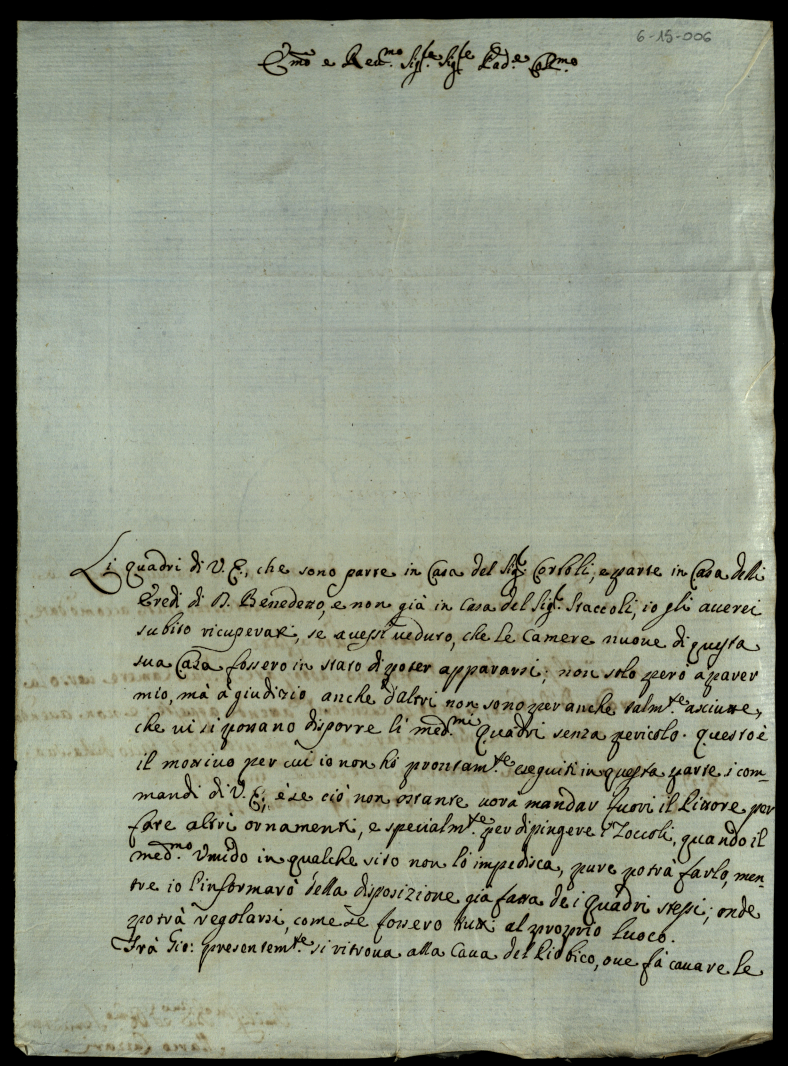 6-15-006
E.mo e Rev.mo Sig.re Sig.re Pad.e Col.mo
Li quadri di V. E., che sono parte in Casa del Sig.r Corboli, e parte in Casa delli
Eredi di B. Benedetto, e non già in Casa del Sig.r Staccoli, io gli averei
subito ricuperati, se avessi veduto, che le Camere nuove di questa
sua Casa fossero in stato di poter appararsi; non solo però a parer
mio, mà à giudizio anche d'altri non sono per anche talm.te asciutte,
che vi si possano disporre li med.mi Quadri senza pericolo. Questo è
il mottivo per cui io non hò prontam.te eseguiti in questa parte i com-
mandi di V. E.; e se ciò non ostante vorà mandar fuori il Pittore per
fare altri ornamenti, e specialm.te per dipingere i Zoccoli, quando il
med.mo Umido in qualche sito non lo impedisca, pure potrà farlo, men-
tre io l'informarò della disposizione già fatta de i Quadri stessi; onde
potrà regolarsi, come se fossero tutti al proprio luoco.
Frà Gio: presentem.te si ritrova alla Cava del Piobico, ove fà cavare le